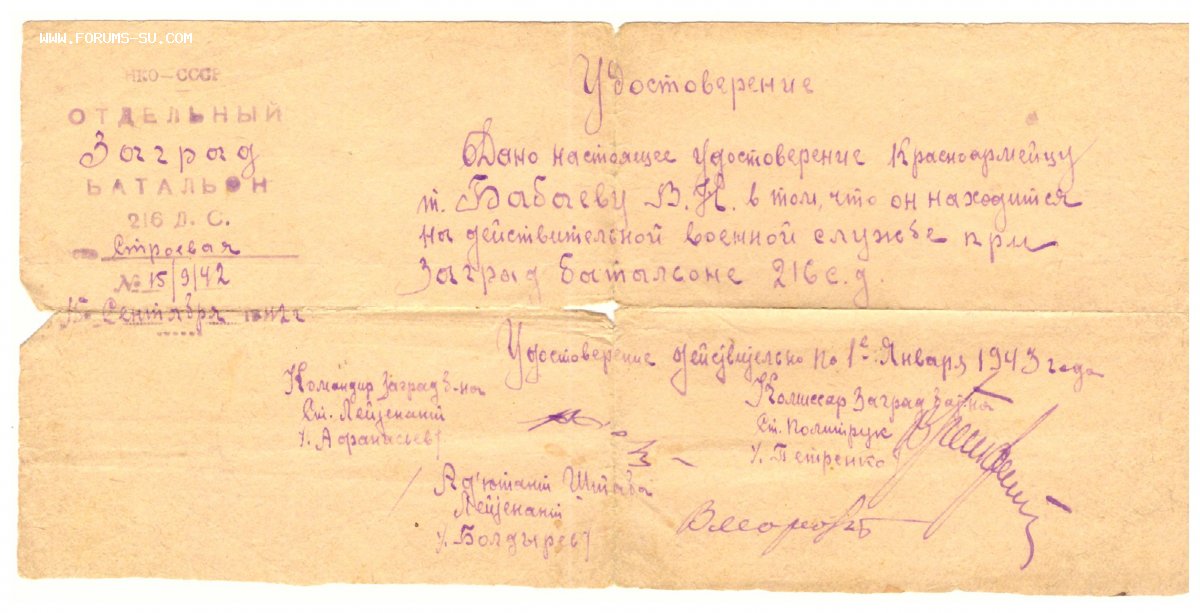 WWW.FORUMS-SU.COM
НКО-СССР
ОТДЕЛЬНЫЙ
Заград
БАТАЛЬОН
216 Д. С.
Строевая
№ 15/9/42
15 Сентября 1942 г
Удостоверение
Дано настоящее удостоверение Красноармейцу
т. Бабаеву В.Н. в том, что он находится
на действительной военной службе при
Заград батальоне 216 с.д.
Удостоверение действительно по 1е Января 1943 года
Командир Заград б-на
Ст. Лейтенант
/. Афанасьев/
Комиссар Заград бат-на
Ст. Политрук
/. Петренко
Ад'ютант Штаба
Лейтенант
/. Болдырев/